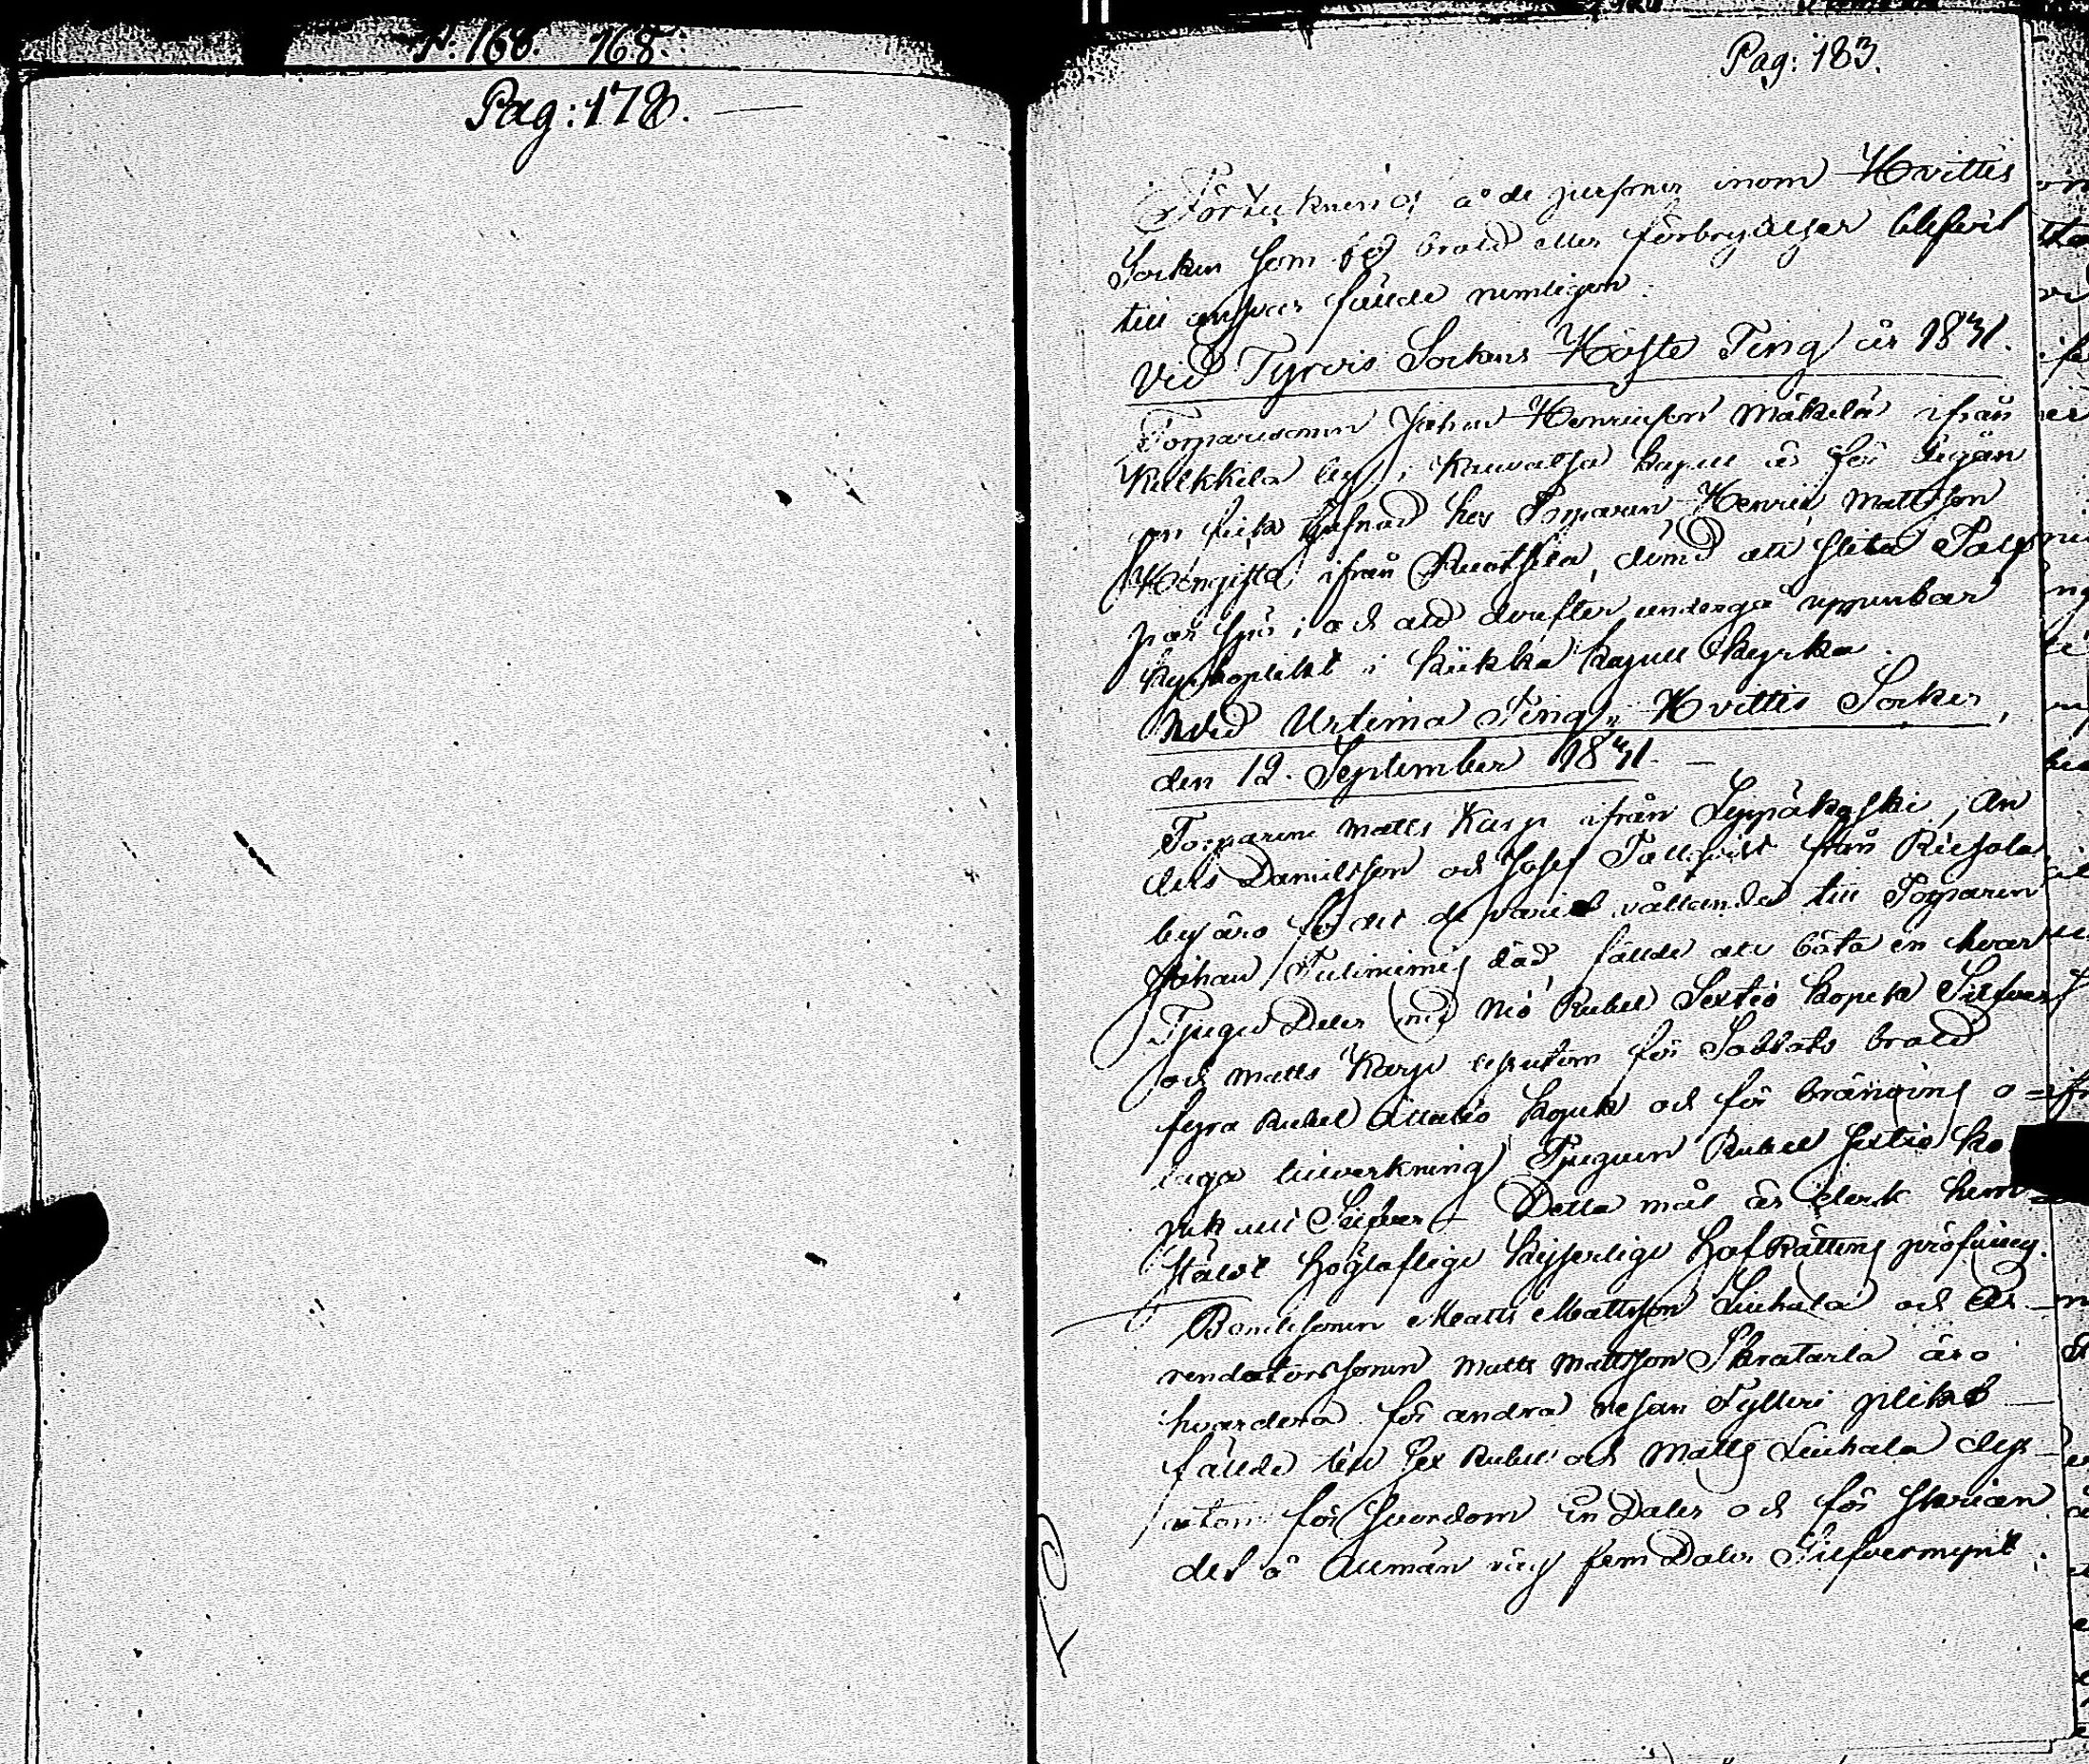 N: 168. 168.
Pag: 178.
Pag: 183.
Förteckning å de personer inom Hvittis
Socken som för brott eller förbrytelser blifvit
till answar fällde nemligen:
Vid Tyrvis Sockens Höste Ting år 1841.
Torparesonen Johan Henricsson Mäkelä ifrån
Kulkkila by i Kauvatsa kapell är för
hos Torparen Henric Mattsson
Hongista ifrån dömd att slita
par spö; och att derefter undergå uppenbar
kyrkoplikt i Kiikka kapell kyrka.
Vid Urtima Ting i Hvittis Socken,
den 12. September 1841.
Torparene Matts Karp ifrån Leppäkoski, An
ders Danielsson och Josef Tallqvist från Riesola
by äro för det de varit vållande till Torparen
Johan död, fällde att böta en hvar
Tjugu Daler med Nio Rubel Sextio kopek Silfver
och Matts Karp dessutom för Sabbats brott
fyra Rubel Åttatio kopek och för bränvins o=
laga tillverkning Rubel sextio ko
pek allt Silfver — Detta mål är dock hem=
stäldt höglaflige kejserlige HofRättens pröfning.
Bondesonen Matts Mattsson Liuhala och Ar=
rendatorssonen Matts Mattsson äro
hvardera för andra resan Fylleri plikt
fällde till Sex Rubel och Matts Liuhala dess=
utom för svordom En Daler och för skrian
det å allmän väg fem Daler Silfvermynt.